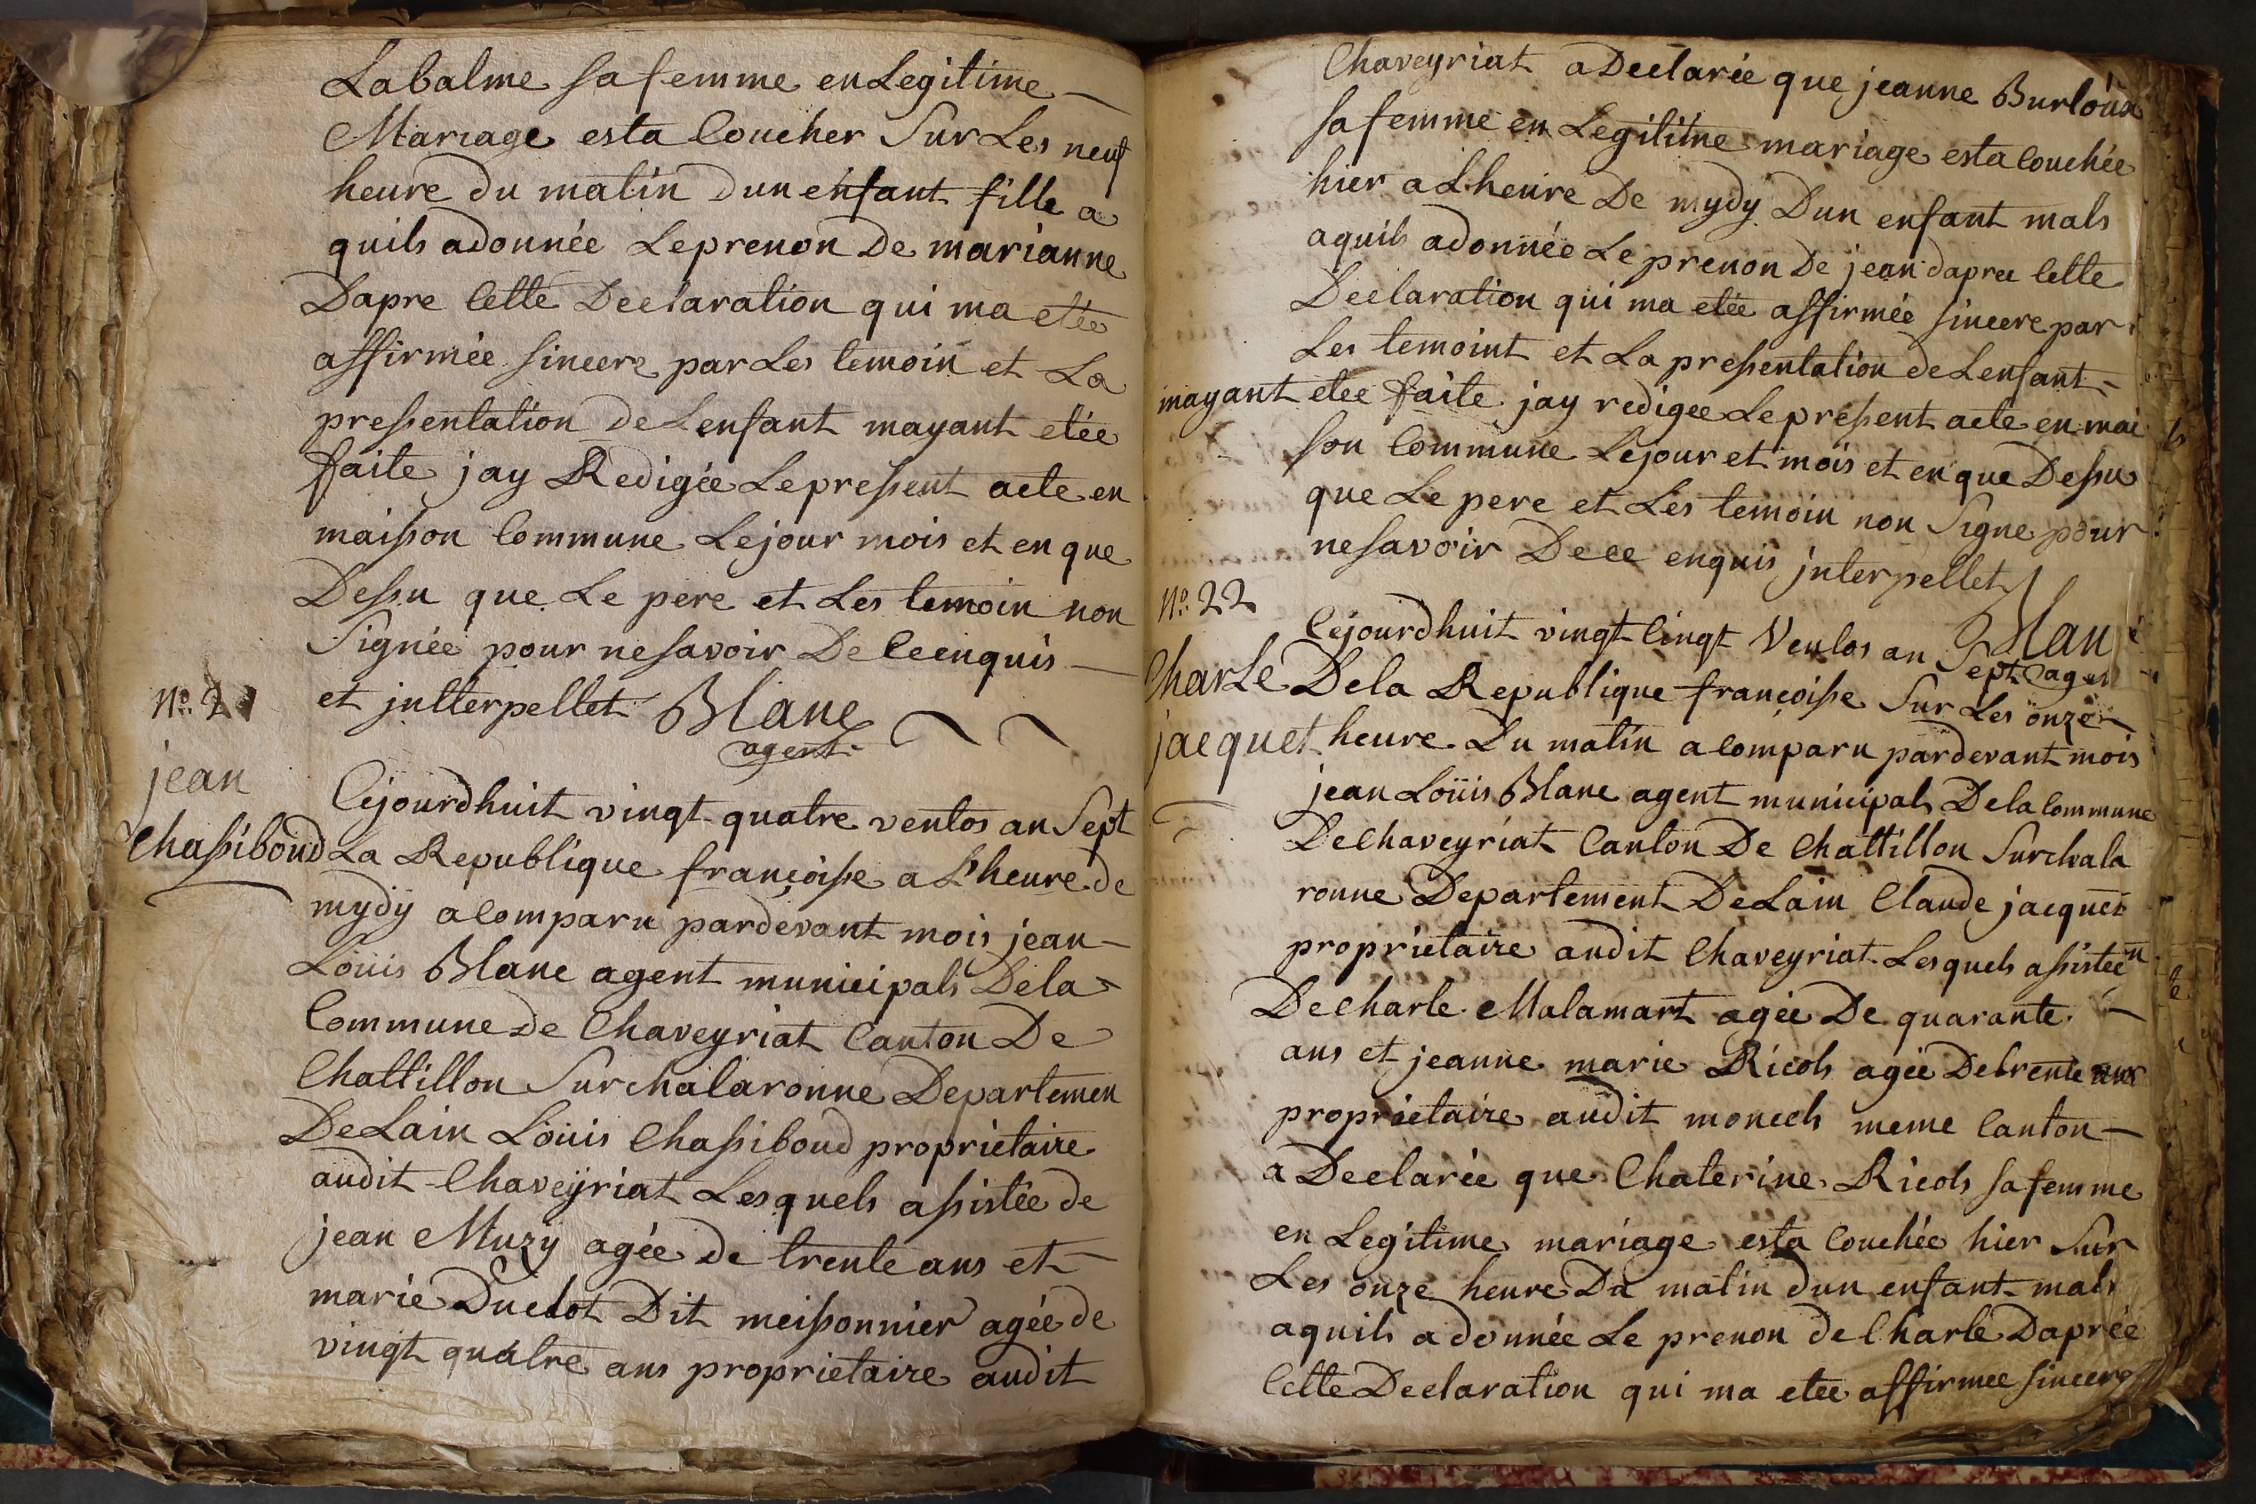 Labalme sa femme en Legitime
Mariage esta Coucher Sur Les neuf
heure du matin dun enfant fille a
quils adonnée Leprenon De marianne
Dapre Cette Declaration qui ma etée
affirmée sincere par Les temoin et La
presentation de Lenfant mayant etée
faite jay Redigée Lepresent acte en
maison Commune Lejour mois et en que
Dessu que Le pere et Les temoin non
Signée pour nesavoir De Ceenquis
et jntterpellet Blanc
agent
No. 21
jean
Chassiboud
Cejourdhuit vingt quatre ventos an Sept
La Republique françoise a Lheure de
mydy a Comparu pardevant mois jean
Loüis Blanc agent municipals Dela
Commune de Chaveyriat Canton De
Chattillon Surchalaronne Departemen
DeLain Loüis Chassiboud proprietaire
audit Chaveyriat Lesquels assistée de
jean Muzy agée de trente ans et
marie Duclot Dit meissonnier agée de
vingt quatre ans proprietaire audit
Chaveyriat a Declarée que jeanne Burloud
sa femme en Legitime mariage esta Couchée
hier a Lheure De mydy Dun enfant mals
aquils adonnée Le prenon De jean dapree Cette
Declaration qui ma etée affirmée sincere par
Les temoint et La presentation de Lenfant
mayant etee faite jay redigee Lepresent acte en mai
son Commune Lejour et mois et en que Dessu
que Le pere et Les temoin non Signe pour
nesavoir De ce enquis jnterpellet
Blan
No. 22
Charle
jacquet
Cejourdhuit vingt Cinqt Ventos an Sept agen
Dela Republique françoise Sur Les onze
heure Du matin a Comparu pardevant mois
jean Loüis Blanc agent municipals Dela Commune
De Chaveyriat Canton De Chattillon Surchala
ronne Departement DeLain Claude jacquet
proprietaire audit Chaveyriat Lesquels assistée
De Charle Malamart agée De quarante
ans et jeanne marie Ricols agée De trente ans
proprietaire audit moncels meme Canton
a Declarée que Chaterine Ricols sa femme
en Legitime mariage esta Couchée hier Sur
Les onze heure Du matin dun enfant mals
aquils adonnée Le prenon de Charle Daprée
Cette Declaration qui ma etee affirmee sincere